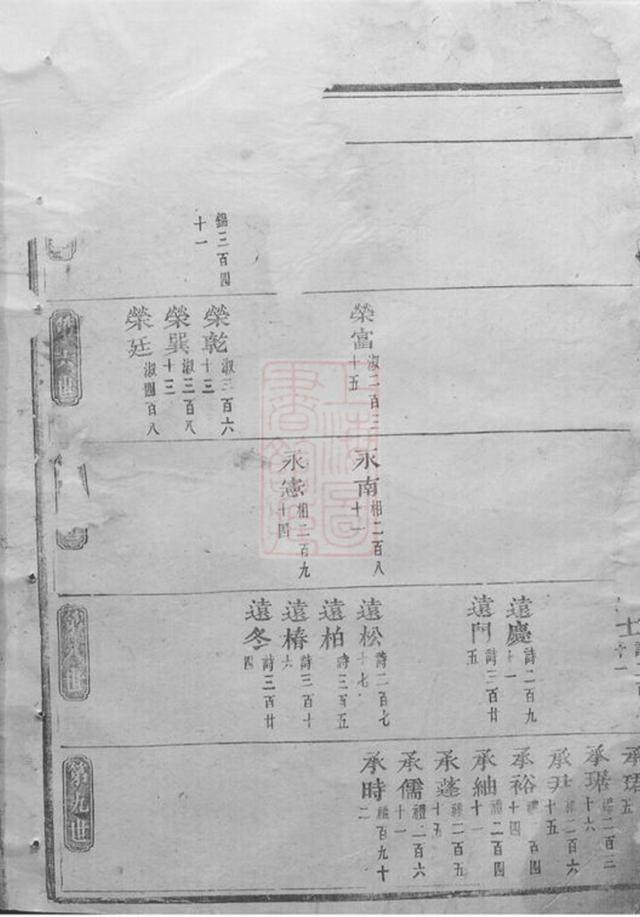 錫三百四十一
榮富 淑二百三十五
榮乾 淑三百六十三
榮巽 淑三百八十三
榮廷 淑四百八
第六世
永南 相二百八十一
永憲 相二百九十四
遠慶 詩二百九十一
遠門 詩三百廿五
遠松 詩二百七十七
遠柏 詩三百五
遠椿 詩三百十六
遠冬 詩三百廿四
第八世
承
承琚 禮二百三十六
承尹 禮二百六十五
承裕 禮百四十四
承紬 禮二百四十一
承蓬 禮二百五十五
承儒 禮二百六十一
承時 禮百九十二
第九世